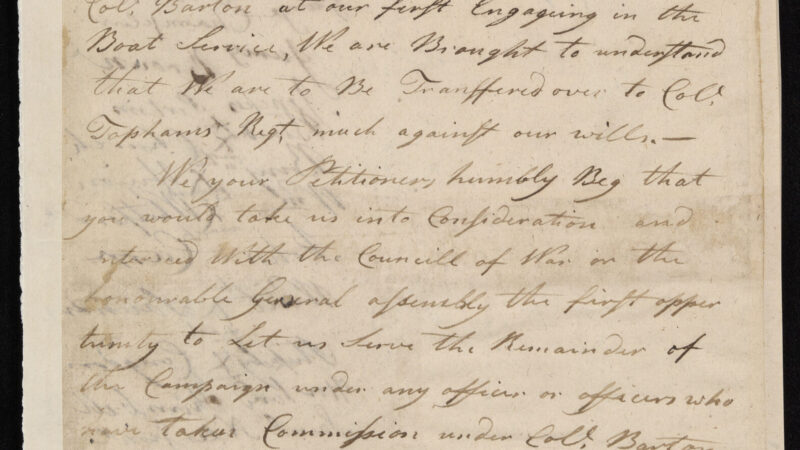 Col. Barton at our first Engageing in the
Boat Service, We are Brought to understand
that We are to Be Transffered over to Col.
Tophams Regt. much against our wills.—
We your Petitioners, humbly Beg that
you would take us into Consideration and
interceed With the Councill of War or the
honourable General assembly the first opper
tunity to Let us Serve the Remainder of
the Campaign under any officer or officers who
have taken Commission under Col. Barton